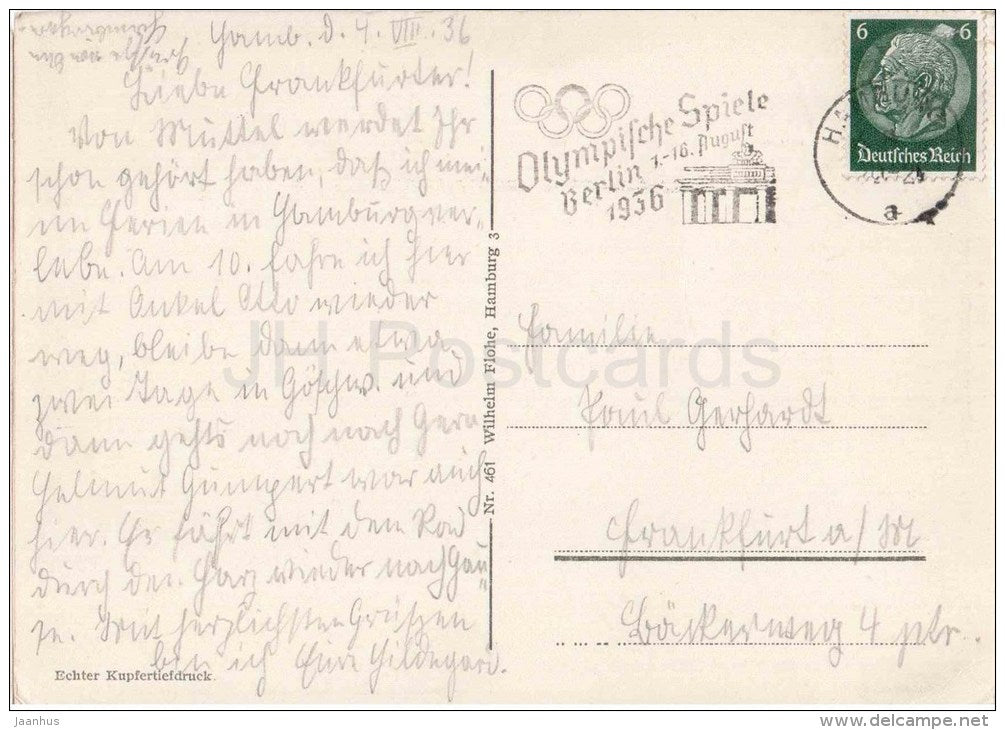 Hamb. d. 4. VIII. 36
Liebe Frankfurter!
Von Muttel werdet Ihr
schon gehört haben, daß ich mei-
ne Ferien in Hamburg ver-
lebe. Am 10. fahre ich hier
mit Onkel Otto wieder
weg, bleibe dann etwa
zwei Tage in Göschw. und
dann gehts noch nach Gera
Helmut Gumpert war auch
hier. Er fährt mit dem Rad
durch den Harz wieder nach Hau-
se. Mit herzlichsten Grüßen
bin ich Eure Hildegard.
Echter Kupfertiefdruck
Nr. 461 Wilhelm Flohe, Hamburg 3
Olympische Spiele
Berlin 1.-16. August
1936
6 6
Deutsches Reich
a
Familie
Paul Gerhardt
Frankfurt a/M
Bäckerweg 4 ptr.
JH Postcards
Jaanhus
www.delcampe.net